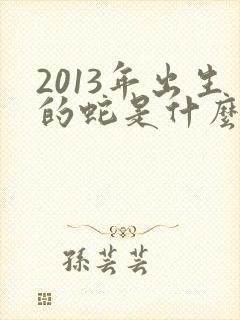 2013年出生
的蛇是什麼
孫芸芸